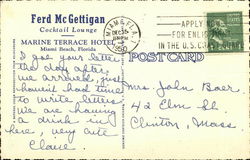 Ferd McGettigan
Cocktail Lounge
MARINE TERRACE HOTEL
Miami Beach, Florida
MIAMI, FLA.
DEC 30
1950
APPLY NOW
FOR ENLI
IN THE U.S.
POST CARD
I got your letter
the day after
we arrived, just
haven't had time
to write letters
we are having
a drink in
here, very cute
Claire.
Mrs. John Baer
42 Elm St
Clinton, Mass.